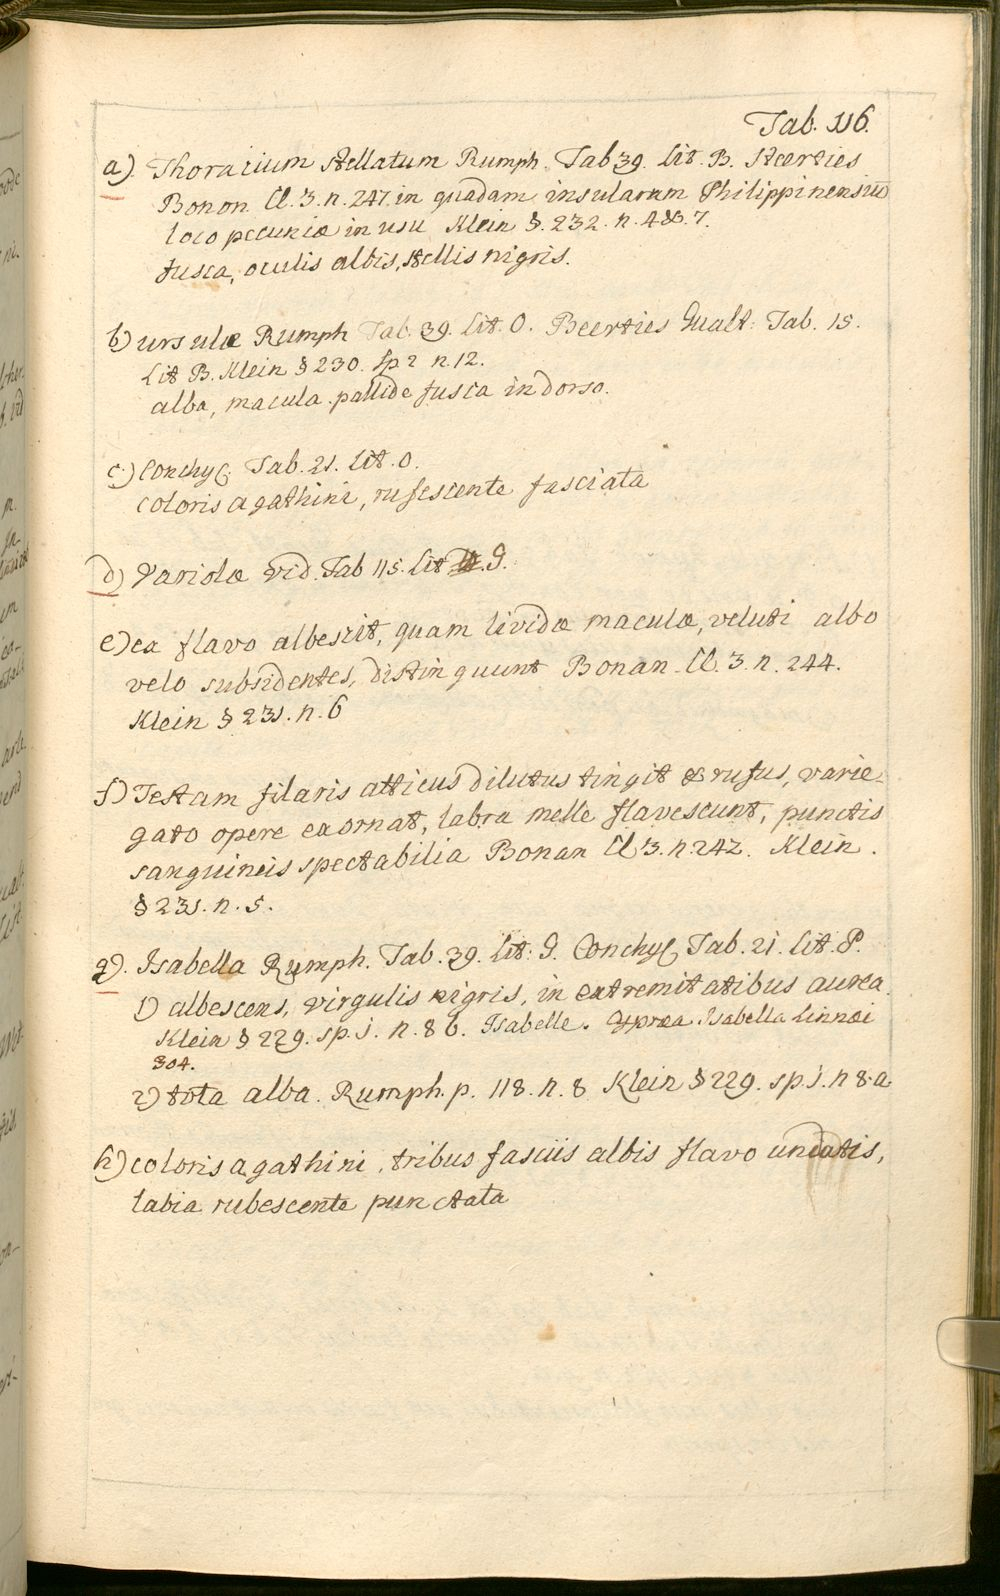 Tab. 116.
a) Thoracium stellatum Rumph. Tab 39. Lit. B. Steerties
Bonon Cl. 3. n. 247. in quadam insularum Philippinensiū
loco pecuniæ in usu Klein §. 232. n. 4 & 7.
fusca, oculis albis, stellis nigris.
b) ursulæ Rumph Tab. 39. Lit. O. Beerties Gualt: Tab. 15.
Lit B. Klein § 230. sp 2 n. 12.
alba, macula pallide fusca in dorso.
c) Conchyl. Tab. 21. Lit. O.
coloris agathini, rufescente fasciata
d) Variolæ vid. Tab 115. Lit G.
e) ex flavo albescit, quam lividæ maculæ, veluti albo
velo subsidentes, distinguunt Bonan Cl. 3. n. 244.
Klein § 231. n. 6
f) Testam filaris atticus dilutus tingit & rufus, varie-
gato opere exornat, labra melle flavescunt, punctis
sanguineis spectabilia Bonan Cl 3. n. 242. Klein.
§ 231. n. 5.
g). Isabella Rumph. Tab. 39. Lit: G. Conchyl Tab. 21. Lit. P.
1) albescens, virgulis nigris, in extremitatibus aurea.
Klein § 229. sp. 1. n. 8 b. Isabelle. Cypræa Isabella Linnæi
304.
2) tota alba. Rumph. p. 118. n. 8 Klein § 229. sp. 1. n 8. a
h) coloris agathini, tribus fasciis albis flavo undatis,
labia rubescente punctata